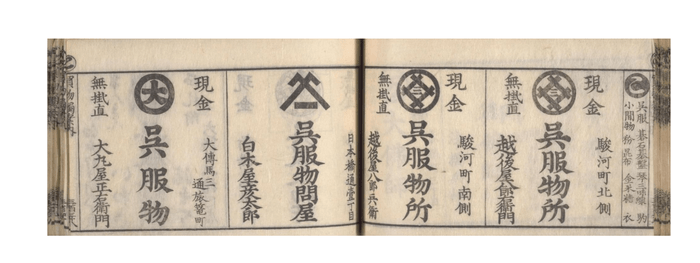 呉服
小間物
現金
駿河町北側
三
呉服物所
無掛直
越後屋八郎右衛門
現金
駿河町南側
三
呉服物所
無掛直
越後屋八郎兵衛
日本橋通壹丁目
呉服物問屋
白木屋彦太郎
現金
大傳馬三
通旅篭町
大
呉服物
無掛直
大丸屋正右衛門